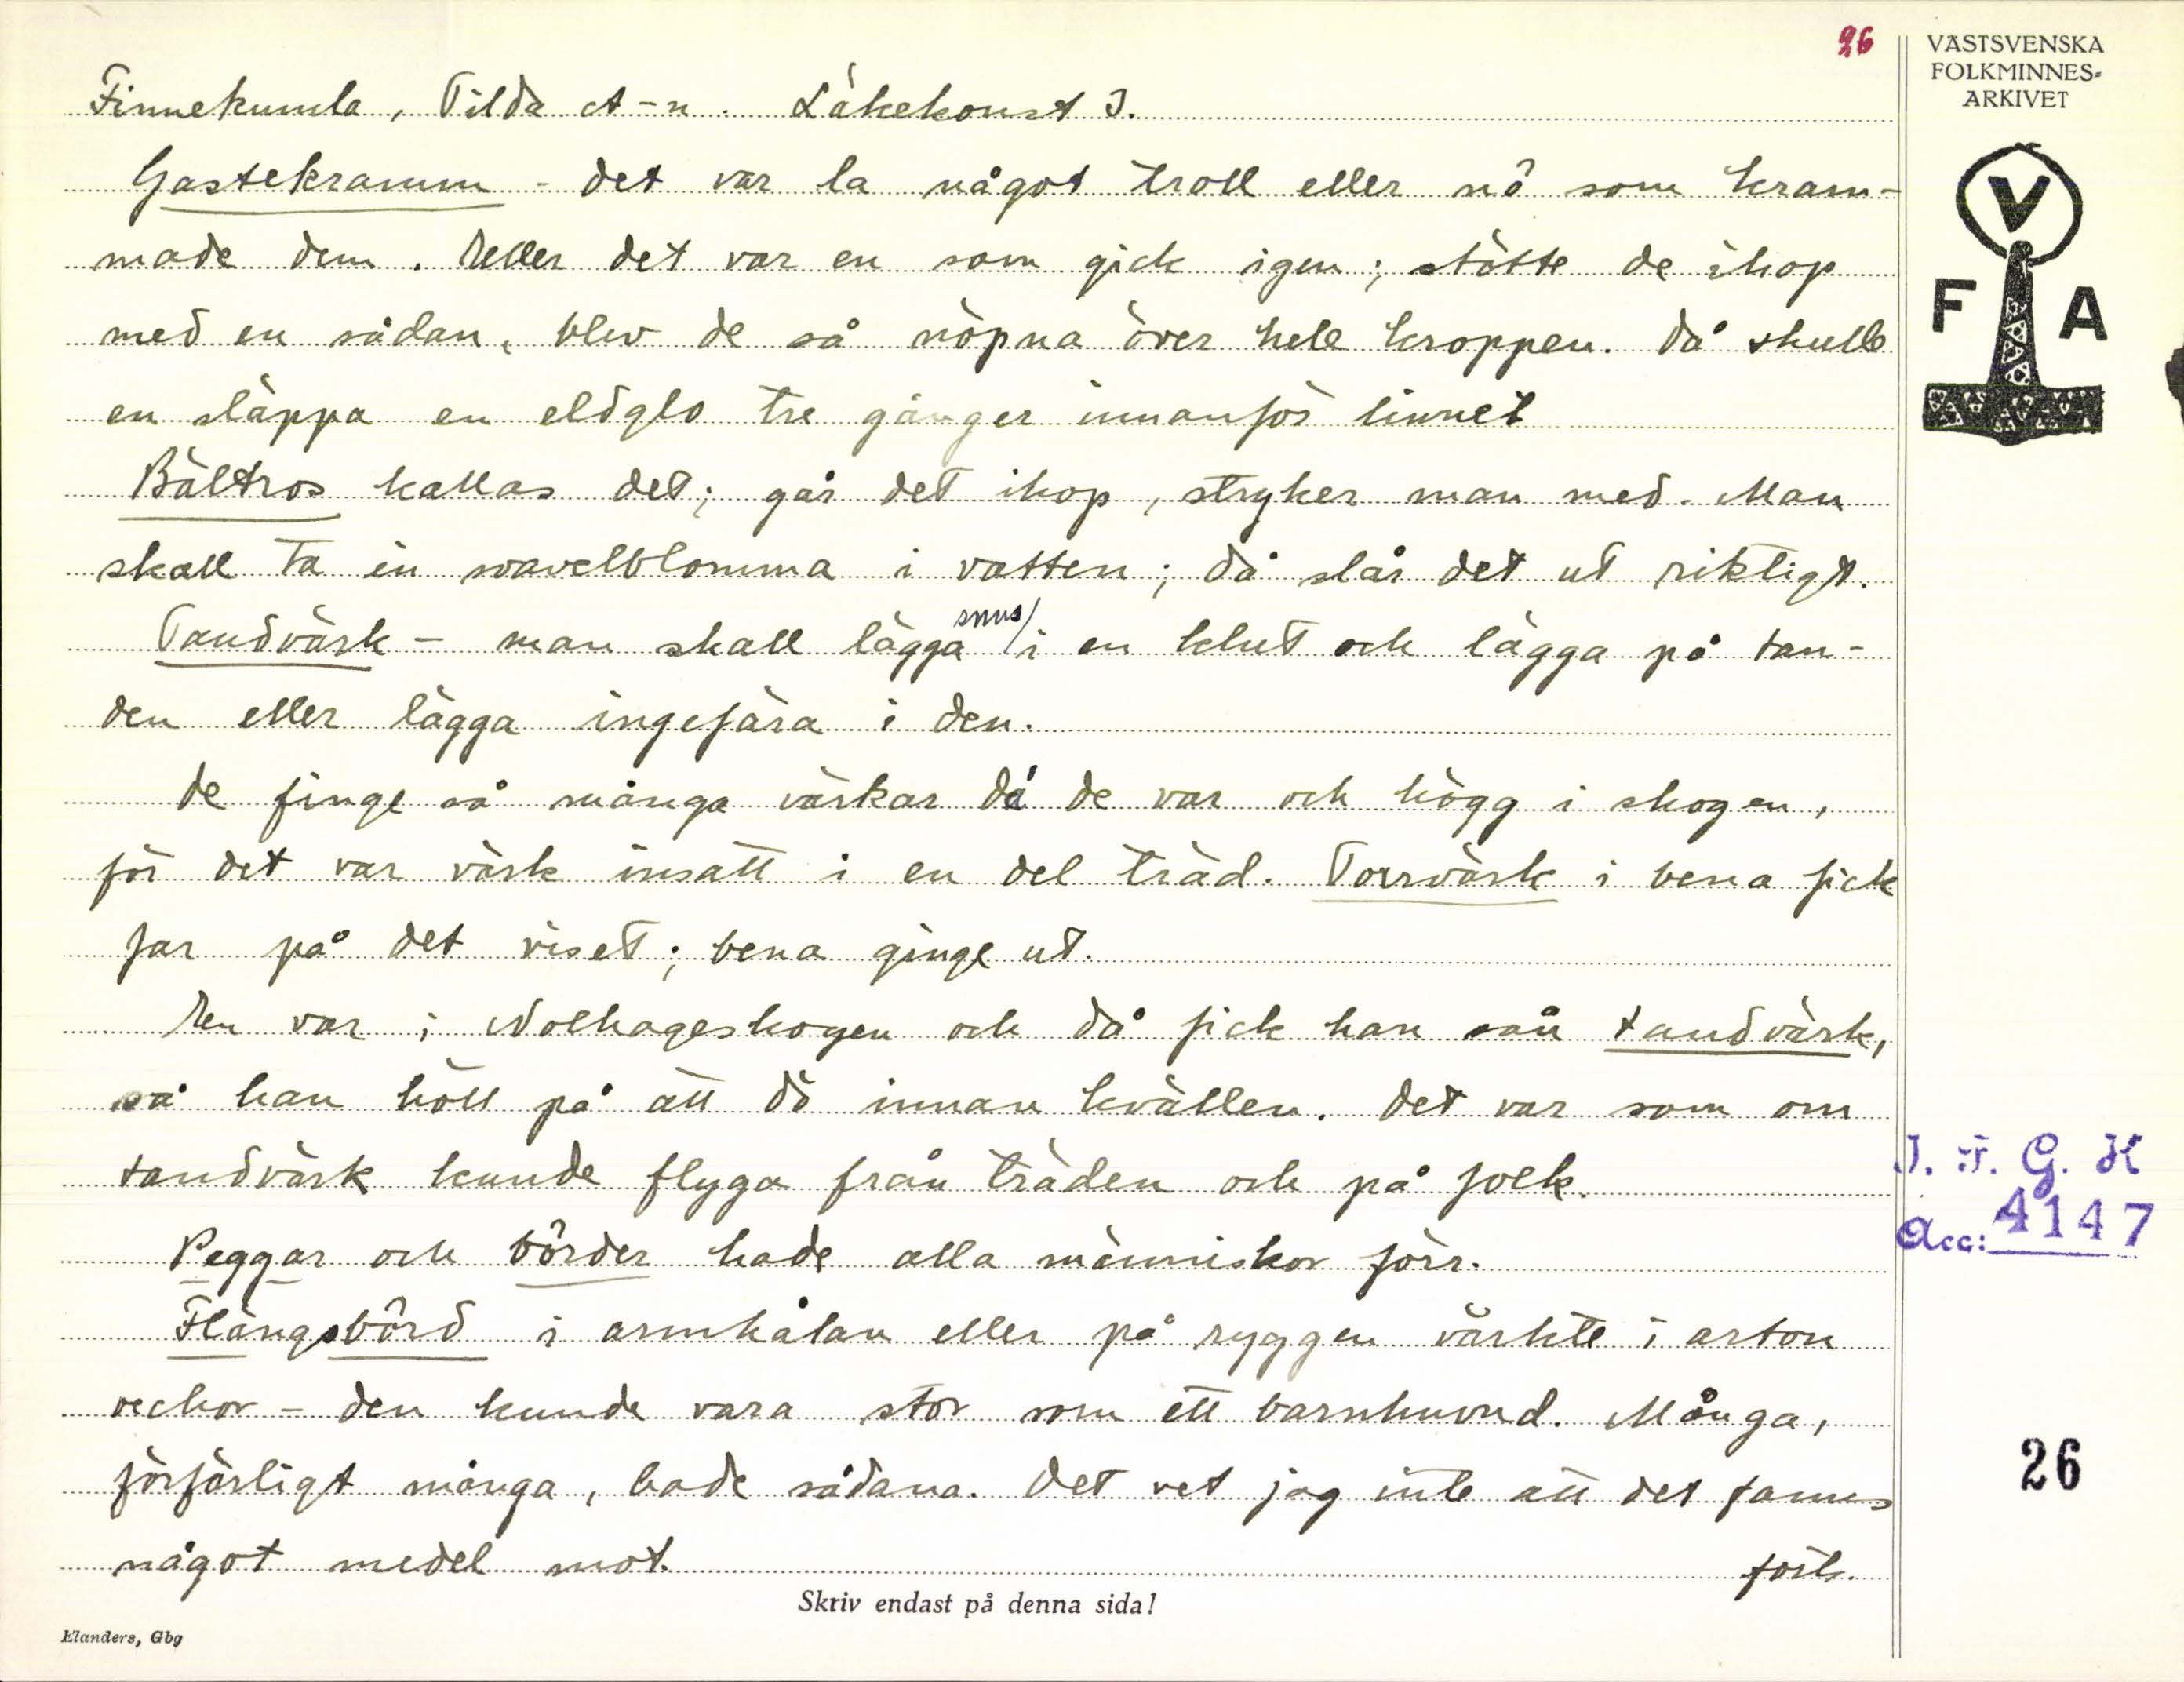 26
VÄSTSVENSKA
FOLKMINNES-
ARKIVET
V
F A
Finnekumla, Tilda A-n. Läkekonst I.
Gastekramm - det var la något troll eller nô som kram-
made dem. Eller det var en som gick igen; stötte de ihop
med en sådan, blev de så nöpna över hele kroppen. Då skulle
en släppa en eldglo tre gånger innanför linnet
Bältros kallas det; går det ihop, stryker man med. Man
skall ta in svavelblomma i vatten; då slår det ut riktigt.
Tandvärk - man skall lägga snus i en klut och lägga på tan-
den eller lägga ingefära i den.
De finge så många värkar då de var och högg i skogen,
för det var värk insatt i en del träd. Torrvärk i bena fick
far på det viset; bena ginge ut.
En var i Nolhageskogen och då fick han sån tandvärk,
så han höll på att dö innan kvällen. Det var som om
tandvärk kunde flyga från träden och på folk.
Peggar och bôrder hade alla människor förr.
Flängsbôrd i armhålan eller på ryggen värkte i arton
veckor - den kunde vara stor som ett barnhuvud. Många,
förfärligt många, hade sådana. Det vet jag inte att det fanns
något medel mot.
forts.
I. F. G. H
Acc: 4147
26
Skriv endast på denna sida!
Elanders, Gbg